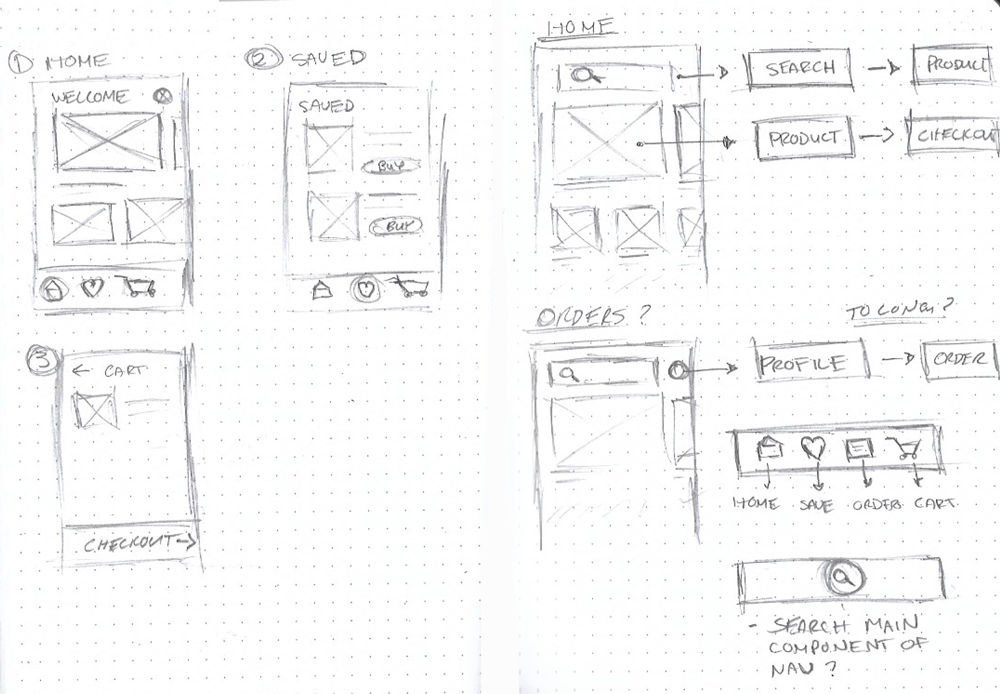 1 HOME
WELCOME
2 SAVED
SAVED
BUY
BUY
3
← CART
CHECKOUT→
HOME
SEARCH → PRODUCT
PRODUCT → CHECKOUT
ORDERS?
TO LONG?
PROFILE → ORDER
HOME SAVE ORDERS CART.
- SEARCH MAIN
COMPONENT OF
NAV?